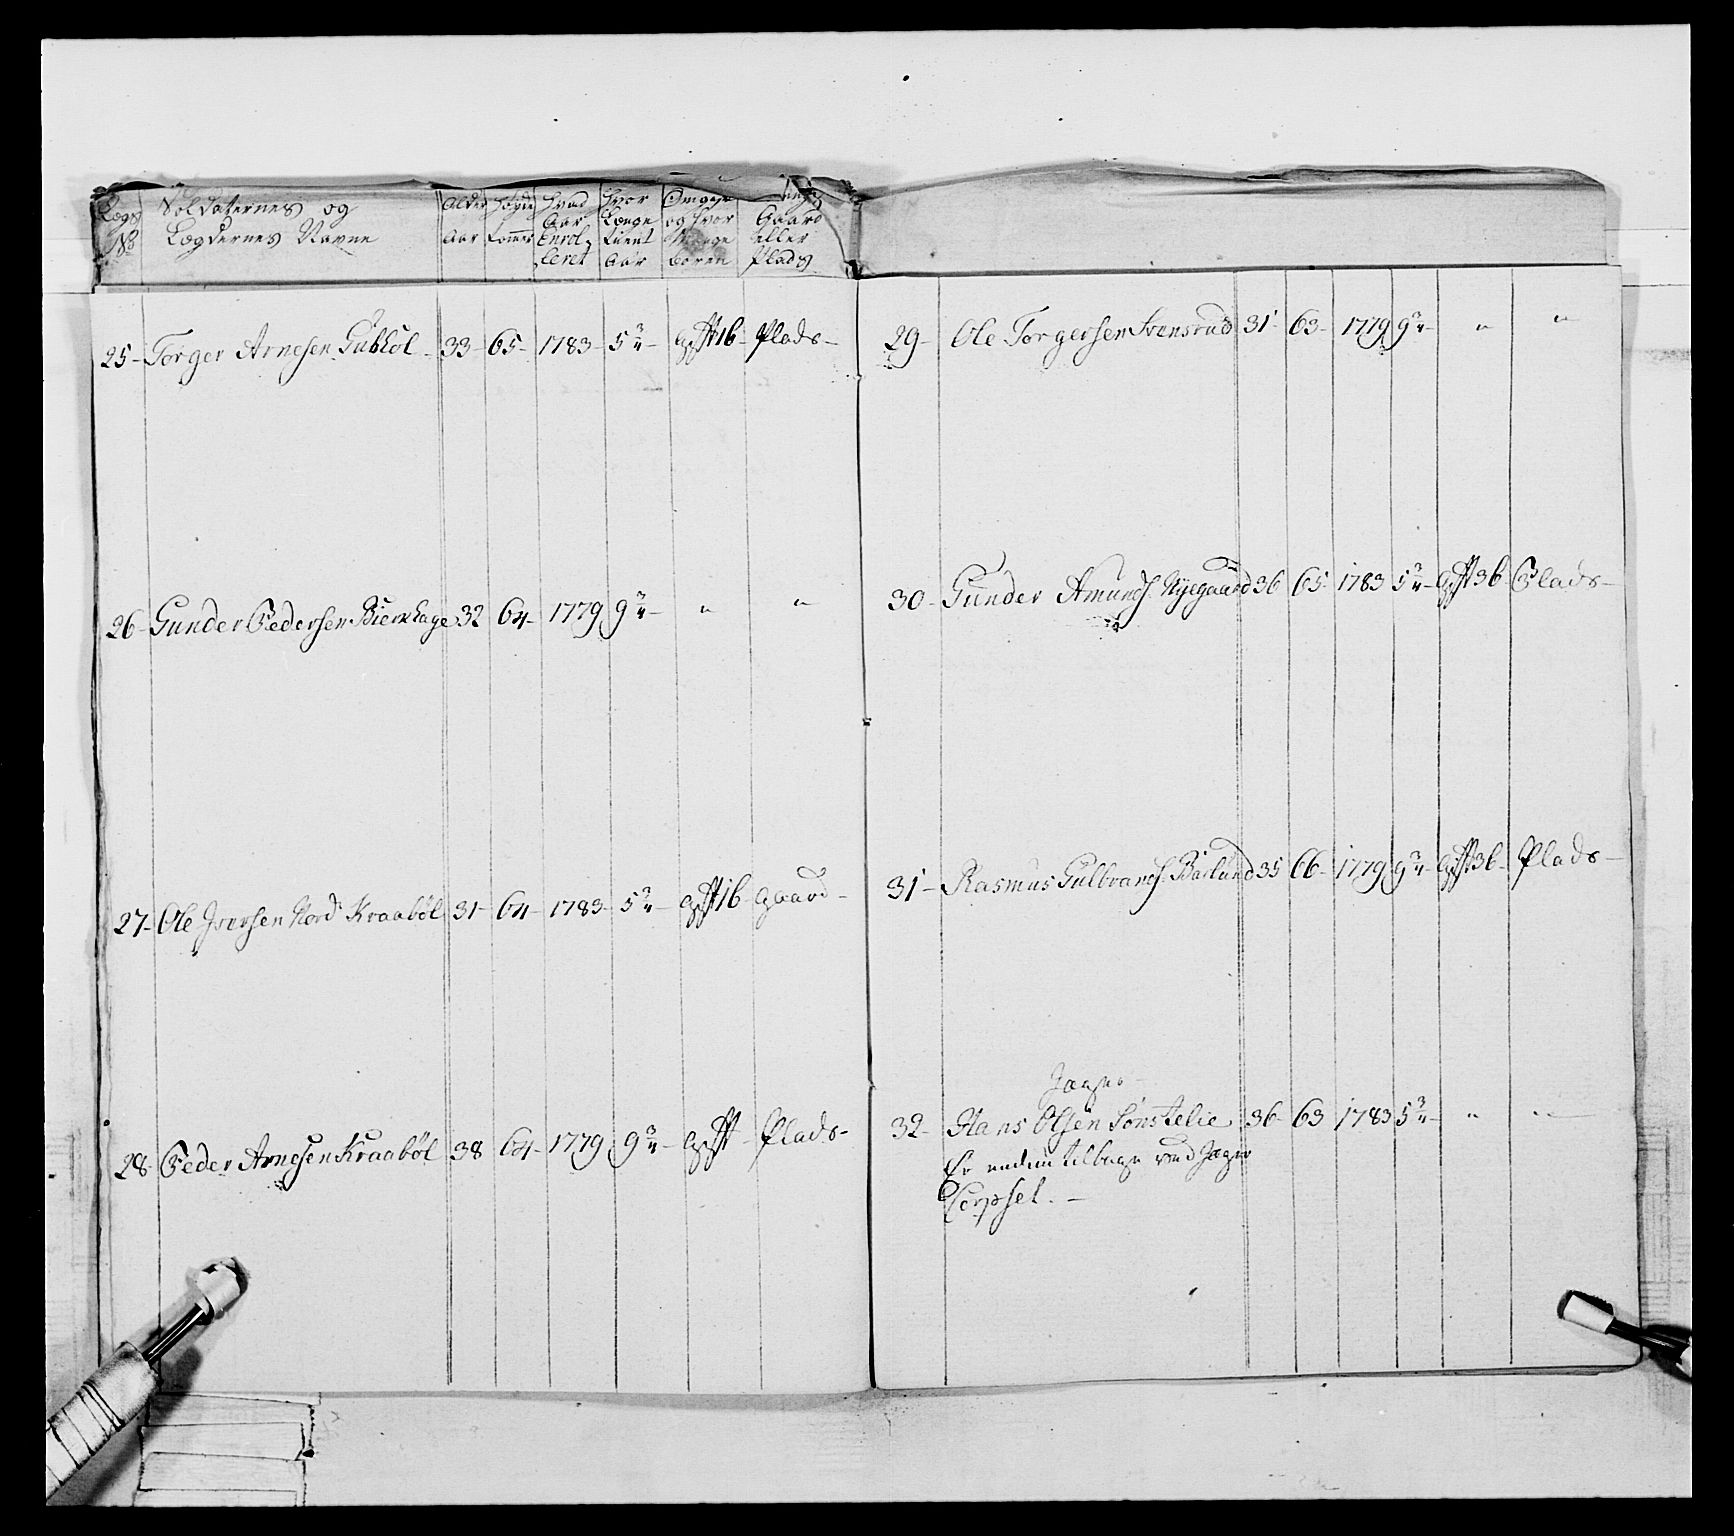 Lægs No | Soldaternes og Lægdernes Navne | Alder Aar | Høyde Tommer | Hvad Aar Enrolleret | Hvor Længe Tient Aar | og hvor Mange Børen | Gaard eller Plads
25- Torger Arnesen Gubhol - 33- 65- 1783- 5 3/4- Gift 1 b Plads-
26- Gunder Pedersen Bierkhage 32 64- 1779 9 3/4- " "
27- Ole Iversen Nord Kraabøl 31- 64- 1783- 5 3/4- Gift 1 b- Gaard-
28- Peder Arnesen Kraabøl 38 64- 1779 9 3/4- Gift- Plads-
29- Ole Torgersen Svensrud 31- 63- 1779 9 3/4- " "
30- Gunder Amunds. Nyegaard 36 65- 1783 5 3/4- Gift 3 b Plads-
31- Rasmus Gulbrands. Baalund 35 66- 1779 9 3/4- Gift 3 b- Plads-
Jæger-
32- Hans Olsen Sønstelie 36- 63 1783 5 3/4- " "
Er endnu tilbage ved Jæger
Corpset. -